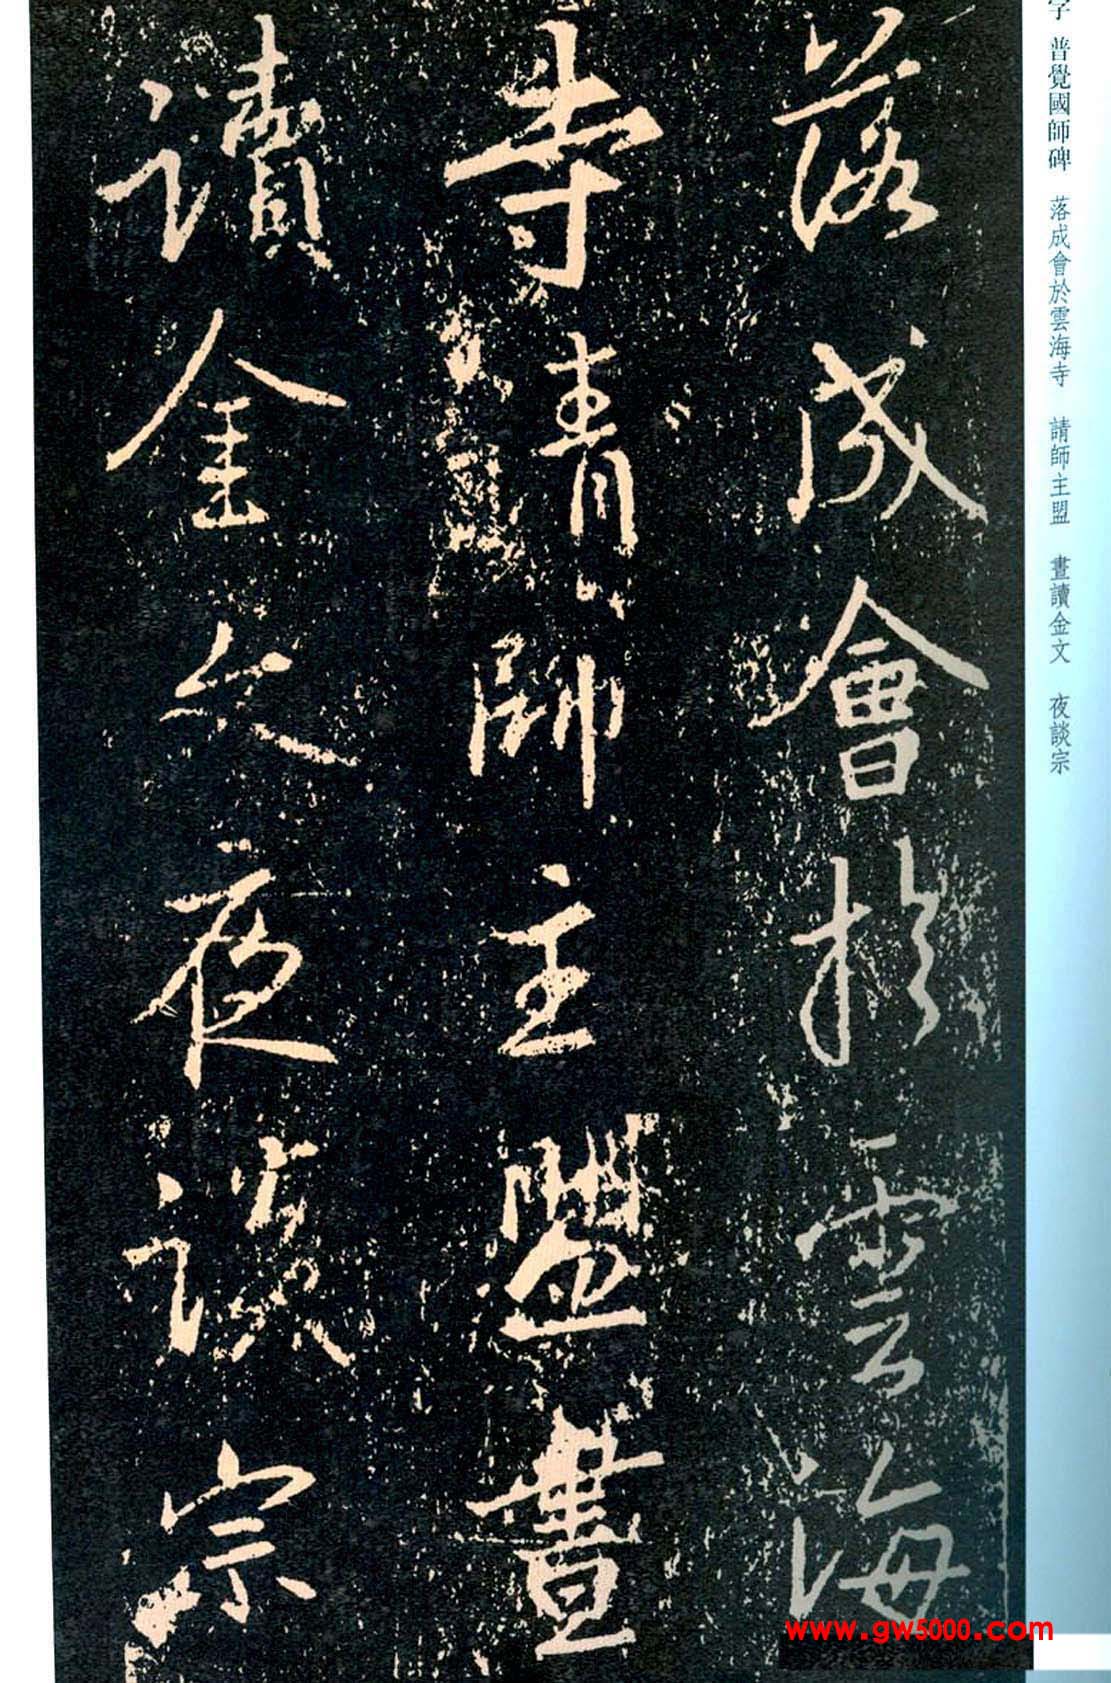 字 普覺國師碑 落成會於雲海寺 請師主盟 晝讀金文 夜談宗
落成會於雲海
寺請師主盟晝
讀金文夜談宗
www.gw5000.com